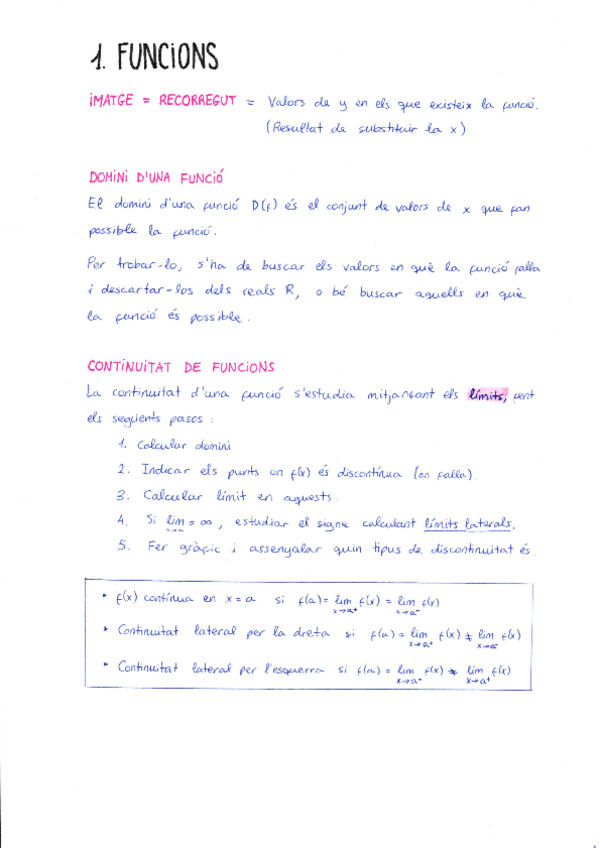 1. FUNCIONS
IMATGE = RECORREGUT = Valors de y en els que existeix la funció.
(Resultat de substituir la x)
DOMINI D'UNA FUNCIÓ
El domini d'una funció D(f) és el conjunt de valors de x que fan
possible la funció.
Per trobar-lo, s'ha de buscar els valors en què la funció falla
i descartar-los dels reals R, o bé buscar aquells en què
la funció és possible.
CONTINUITAT DE FUNCIONS
La continuitat d'una funció s'estudia mitjançant els límits, fent
els següents pasos :
1. Calcular domini
2. Indicar els punts on f(x) és discontínua (on falla).
3. Calcular límit en aquests.
4. Si lim = ∞, estudiar el signe calculant límits laterals.
5. Fer gràfic i assenyalar quin tipus de discontinuitat és.
• f(x) contínua en x = a si f(a) = lim f(x) = lim f(x)
x→a⁺ x→a⁻
• Continuitat lateral per la dreta si f(a) = lim f(x) ≠ lim f(x)
x→a⁺ x→a⁻
• Continuitat lateral per l'esquerra si f(a) = lim f(x) ≠ lim f(x)
x→a⁻ x→a⁺